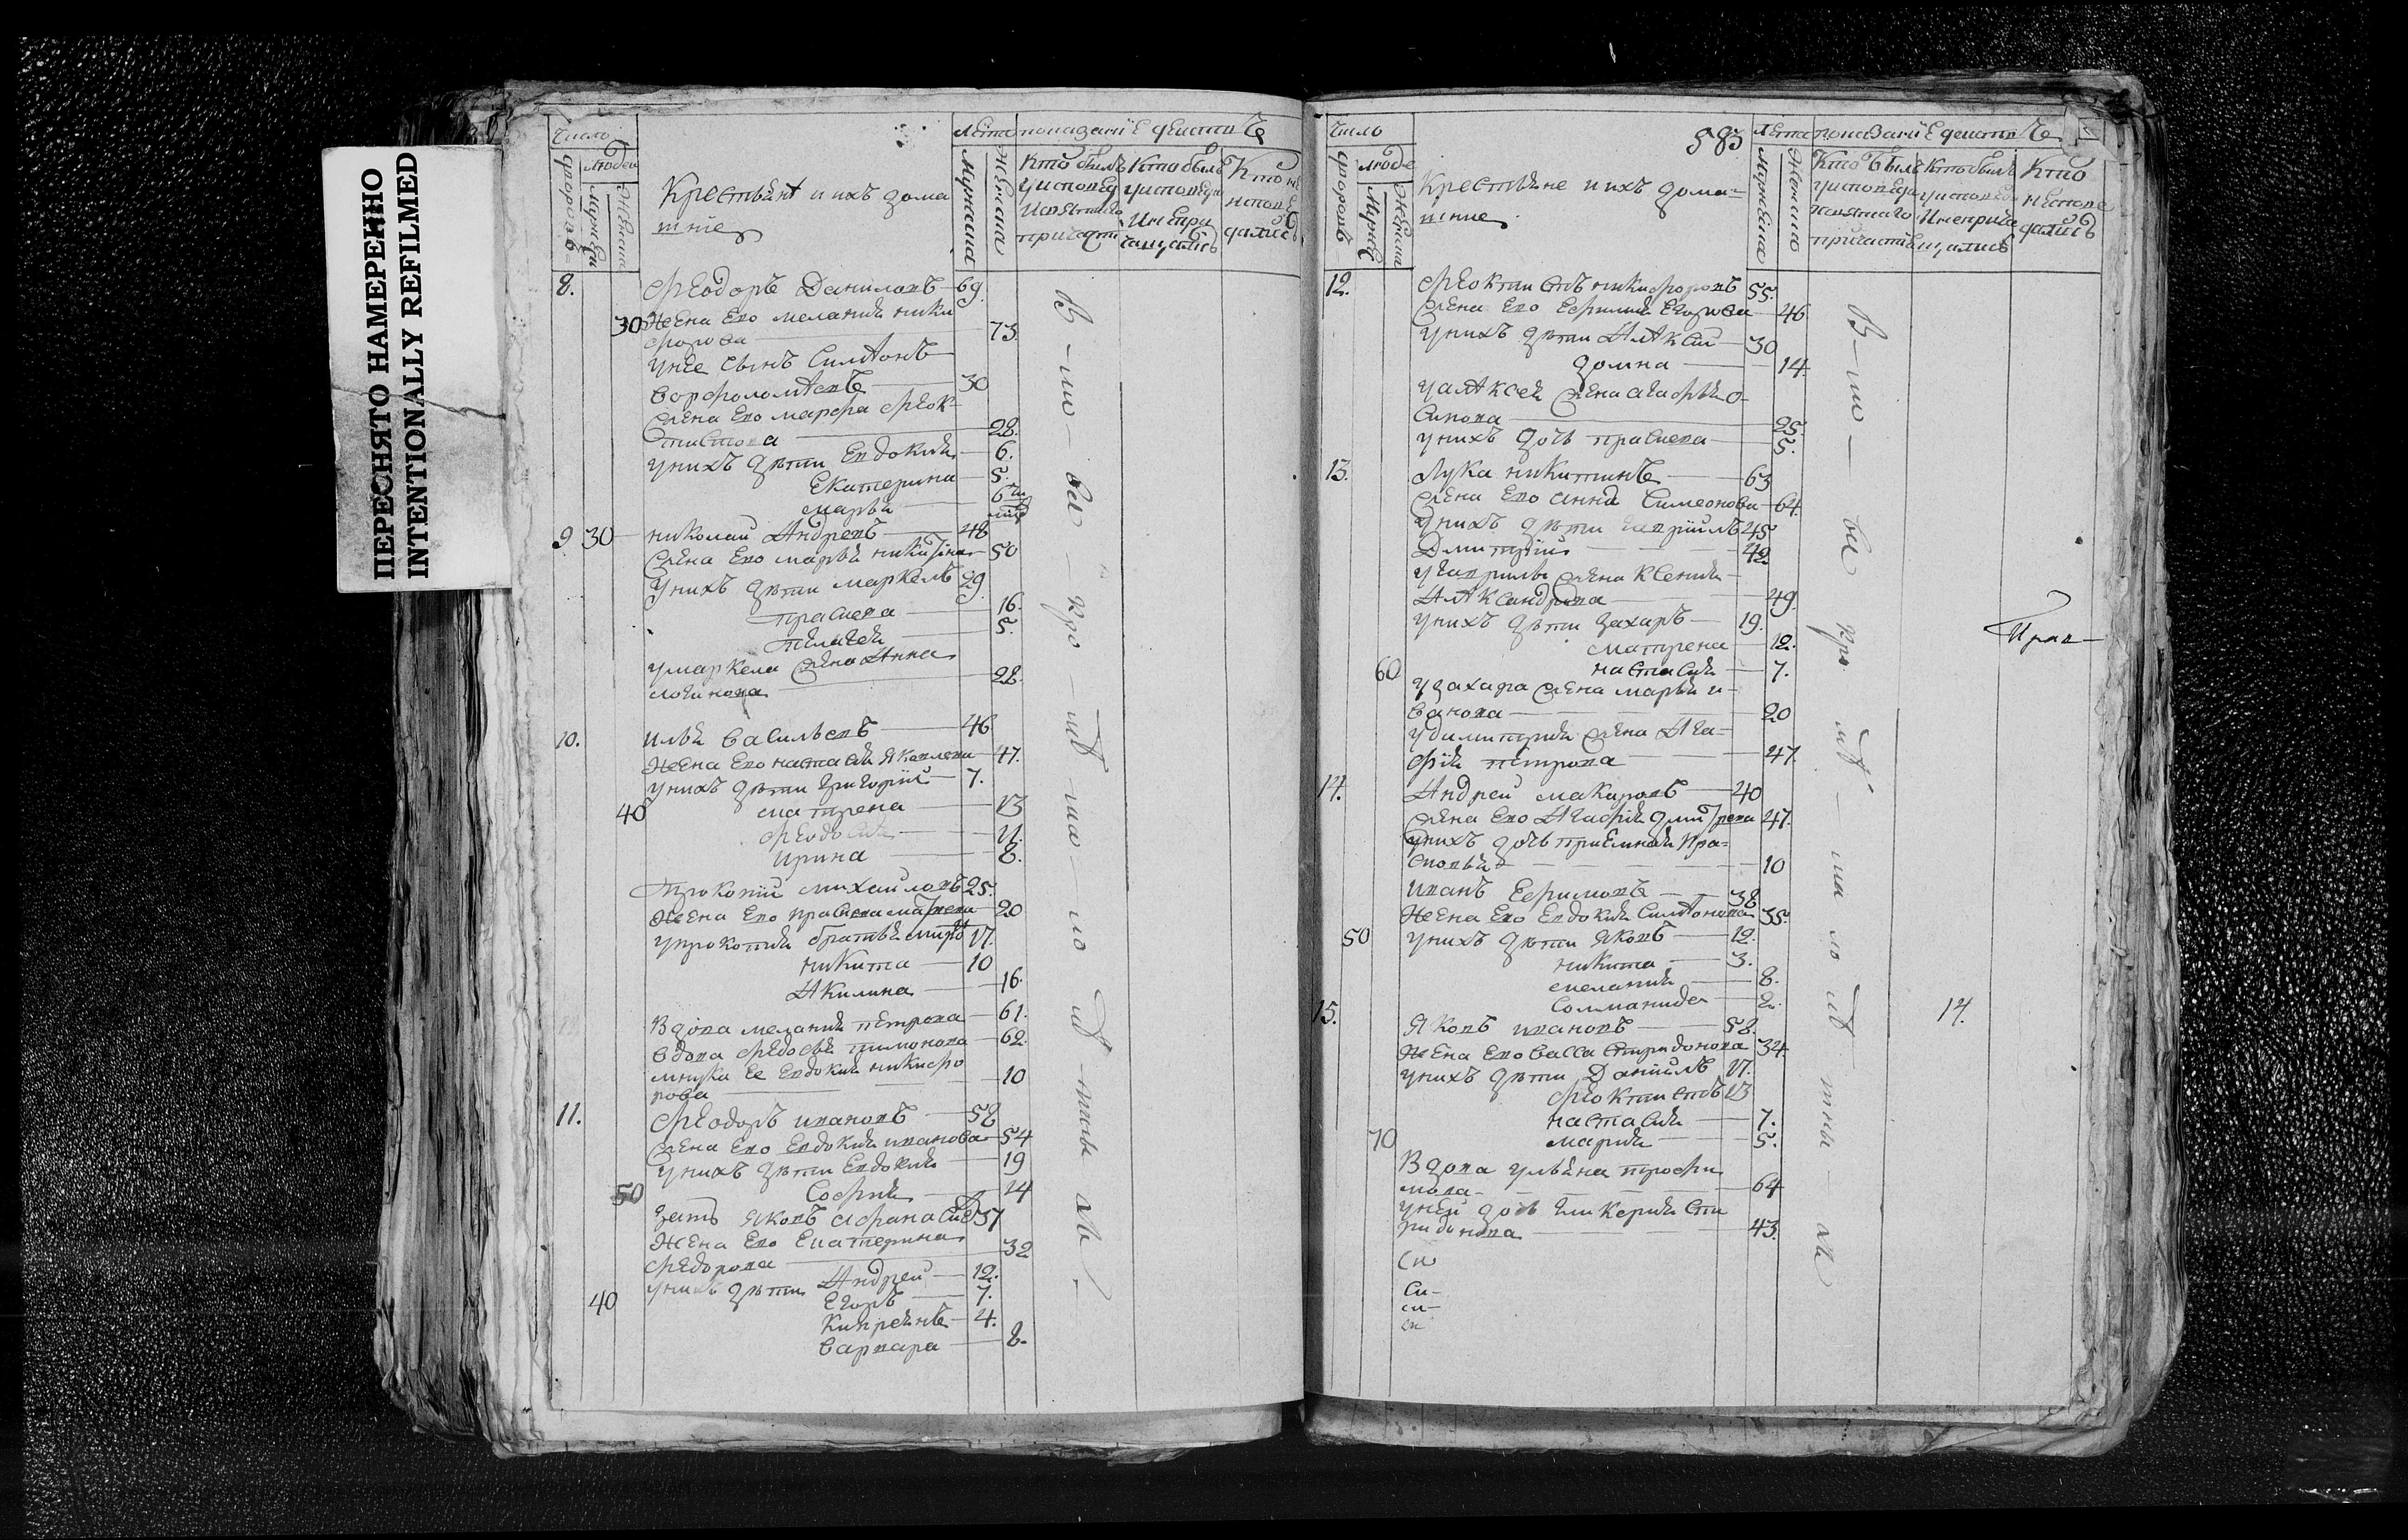 ПЕРЕСНЯТО НАМЕРЕННО
INTENTIONALLY REFILMED
Число
людей
Крестьяне и ихъ домашние
Лета
показание действъ
дворовъ
Мужеска
Женска
Кто былъ у исповеди и святаго причастия
Кто былъ у исповеди и не причащались
Кто не исповедались
8. Феодоръ Даниловъ 69.
30 Жена Ево Мелания Ники
форова 73.
У нее Сынъ Симеонъ
Ворфоломеевъ 30
Жена Ево Марфа Феок
тистова 28.
У нихъ дети Евдокия 6.
Екатерина 5.
Марья
9 30 Николай Андреевъ 48
Жена Ево Марья Никитина 50
У нихъ дети Маркелъ 29.
Праскева 16.
Пелагея 5.
У Маркела Жена Анна
Логинова 28.
10. Илья Васильевъ 46
Жена Ево Настасия Яковлева 47.
У нихъ дети Григорий 7.
40 Матрена 13
Феодосия 11.
Ирина 8.
Прокопий Михаиловъ 25.
Жена Ево Праскева 20
У Прокопия братья 17.
Никита 10
Акилина 16.
Вдова Мелания Петрова 61.
Вдова Федосья Тимонова 62.
Внука Ее Евдокия Никифо
рова 10
11. Феодоръ Ивановъ 58
Жена Ево Евдокия Иванова 54
У нихъ дети Евдокия 19
50 София 14
Зять Яковъ Афанасиевъ 37
Жена Ево Екатерина
Федорова 32
У нихъ дети Андрей 12.
40 Егоръ 7.
Киприянъ 4.
Варвара 8.
583
Число
людей
Крестьяне и ихъ дома=
шние
Лета
показание действъ
дворовъ
Мужеска
Женска
Кто былъ у исповеди и святаго причастия
Кто былъ у исповеди и не причащались
Кто не исповедались
12. Феоктистъ Никифоровъ 55.
Жена Ево Ефимия Егорова 46
У нихъ дети Алексий 30
Домна 14.
У Алексея Жена Агафья О-
сипова 25.
У нихъ дочь Праскева 5.
13. Лука Никитинъ 63
Жена Ево Анна Симеонова 64.
У нихъ дети Гавриилъ 45
Дмитрий 42
У Гаврилы Жена Ксения
Александрова 49.
У нихъ дети Захаръ 19.
Матрена 12.
60 Настасия 7.
У Захара Жена Марья И-
ванова 20
У Димитрия Жена Ага=
фия Петрова 47.
14. Андрей Макаровъ 40
Жена Ево Агафия Дмитрева 47.
У нихъ дочь приемная Пра=
сковья 10
Иванъ Ефимовъ 38
Жена Ево Евдокия Симеонова 35
50 У нихъ дети Яковъ 12.
Никита 3.
Мелания 8.
Соломанида 2.
15. 14.
Яковъ Ивановъ 58.
Жена Ево Васса Спиридонова 34
У нихъ дети Даниилъ 17.
Феоктистъ 13
Настасия 7.
70 Мария 5.
Вдова Ульяна Трофи
мова 64
У ней дочь Гликерия Спи
ридонова 43.